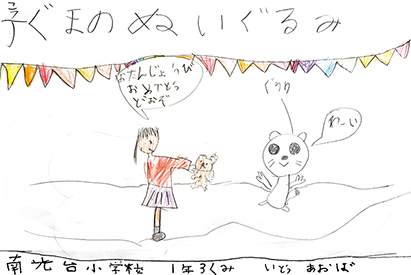 子ぐまのぬいぐるみ
おたんじょうび
おめでとう
どおぞ
わーい
南光台小学校 1年3くみ いとう あおば